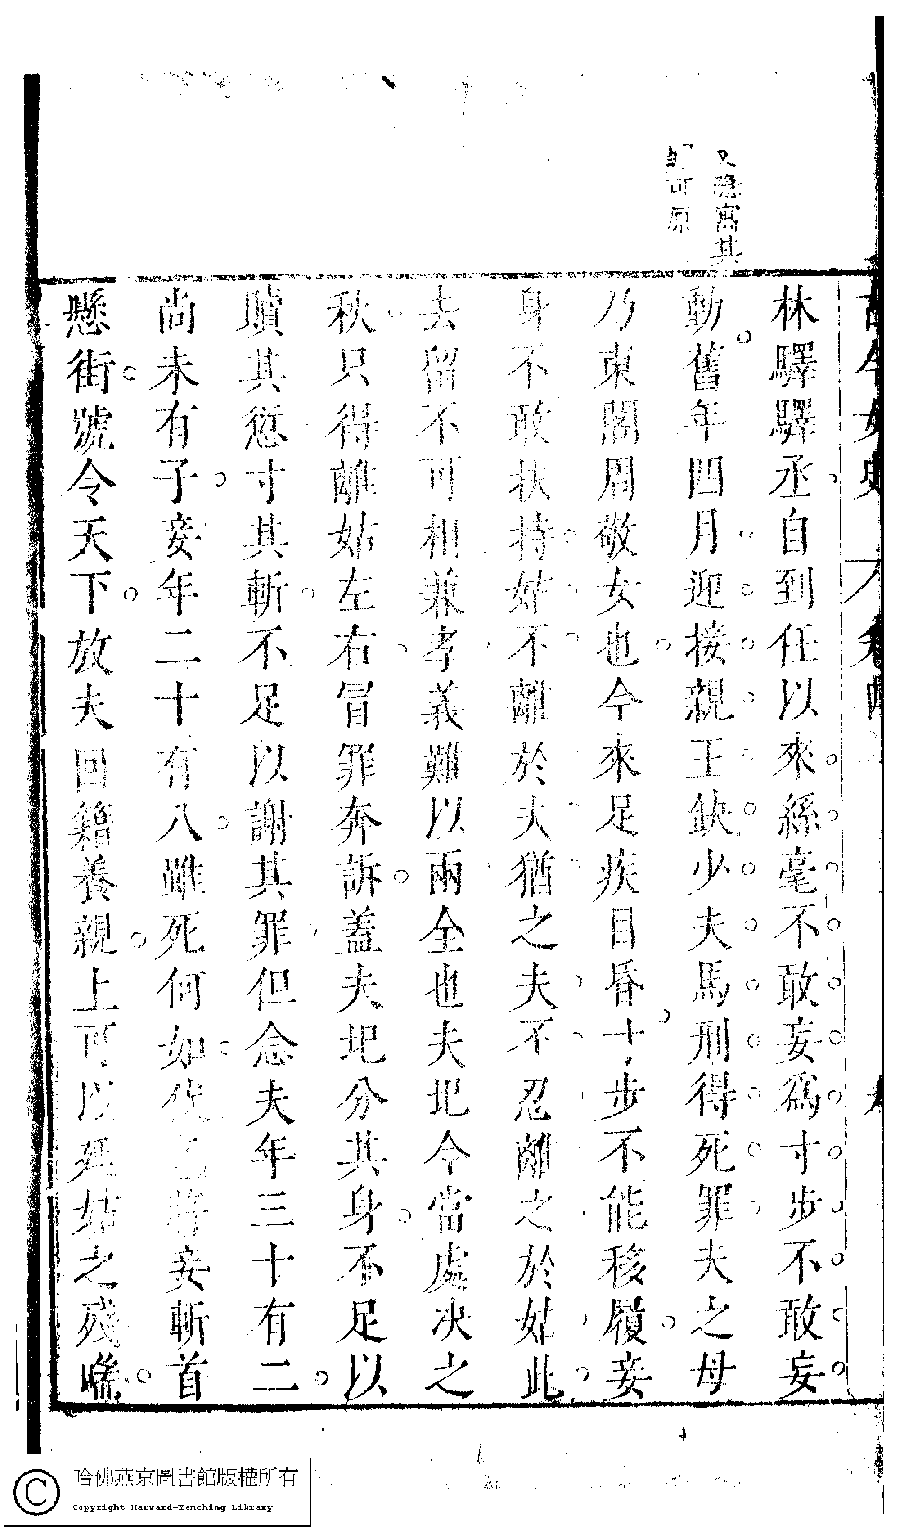 隱寓其
可原
林驛驛丞自到任以來絲毫不敢妄爲寸步不敢妄
動舊年四月迎接親王缺少夫馬刑得死罪夫之母
乃東閣周敬女也今來足疾目昏十步不能移履妾
身不敢扶持姑不離於夫猶之夫不忍離之於姑此
去留不可相兼孝義難以兩全也夫犯今當處决之
秋只得離姑左右冒罪奔訴葢夫犯分其身不足以
贖其愆寸其斬不足以謝其罪但念夫年三十有二
尚未有子妾年二十有八雖死何如伏乞將妾斬首
懸街號令天下放夫回籍養親上可以延姑之殘喘
哈佛燕京圖書館版權所有
Copyright Harvard-Yenching Library